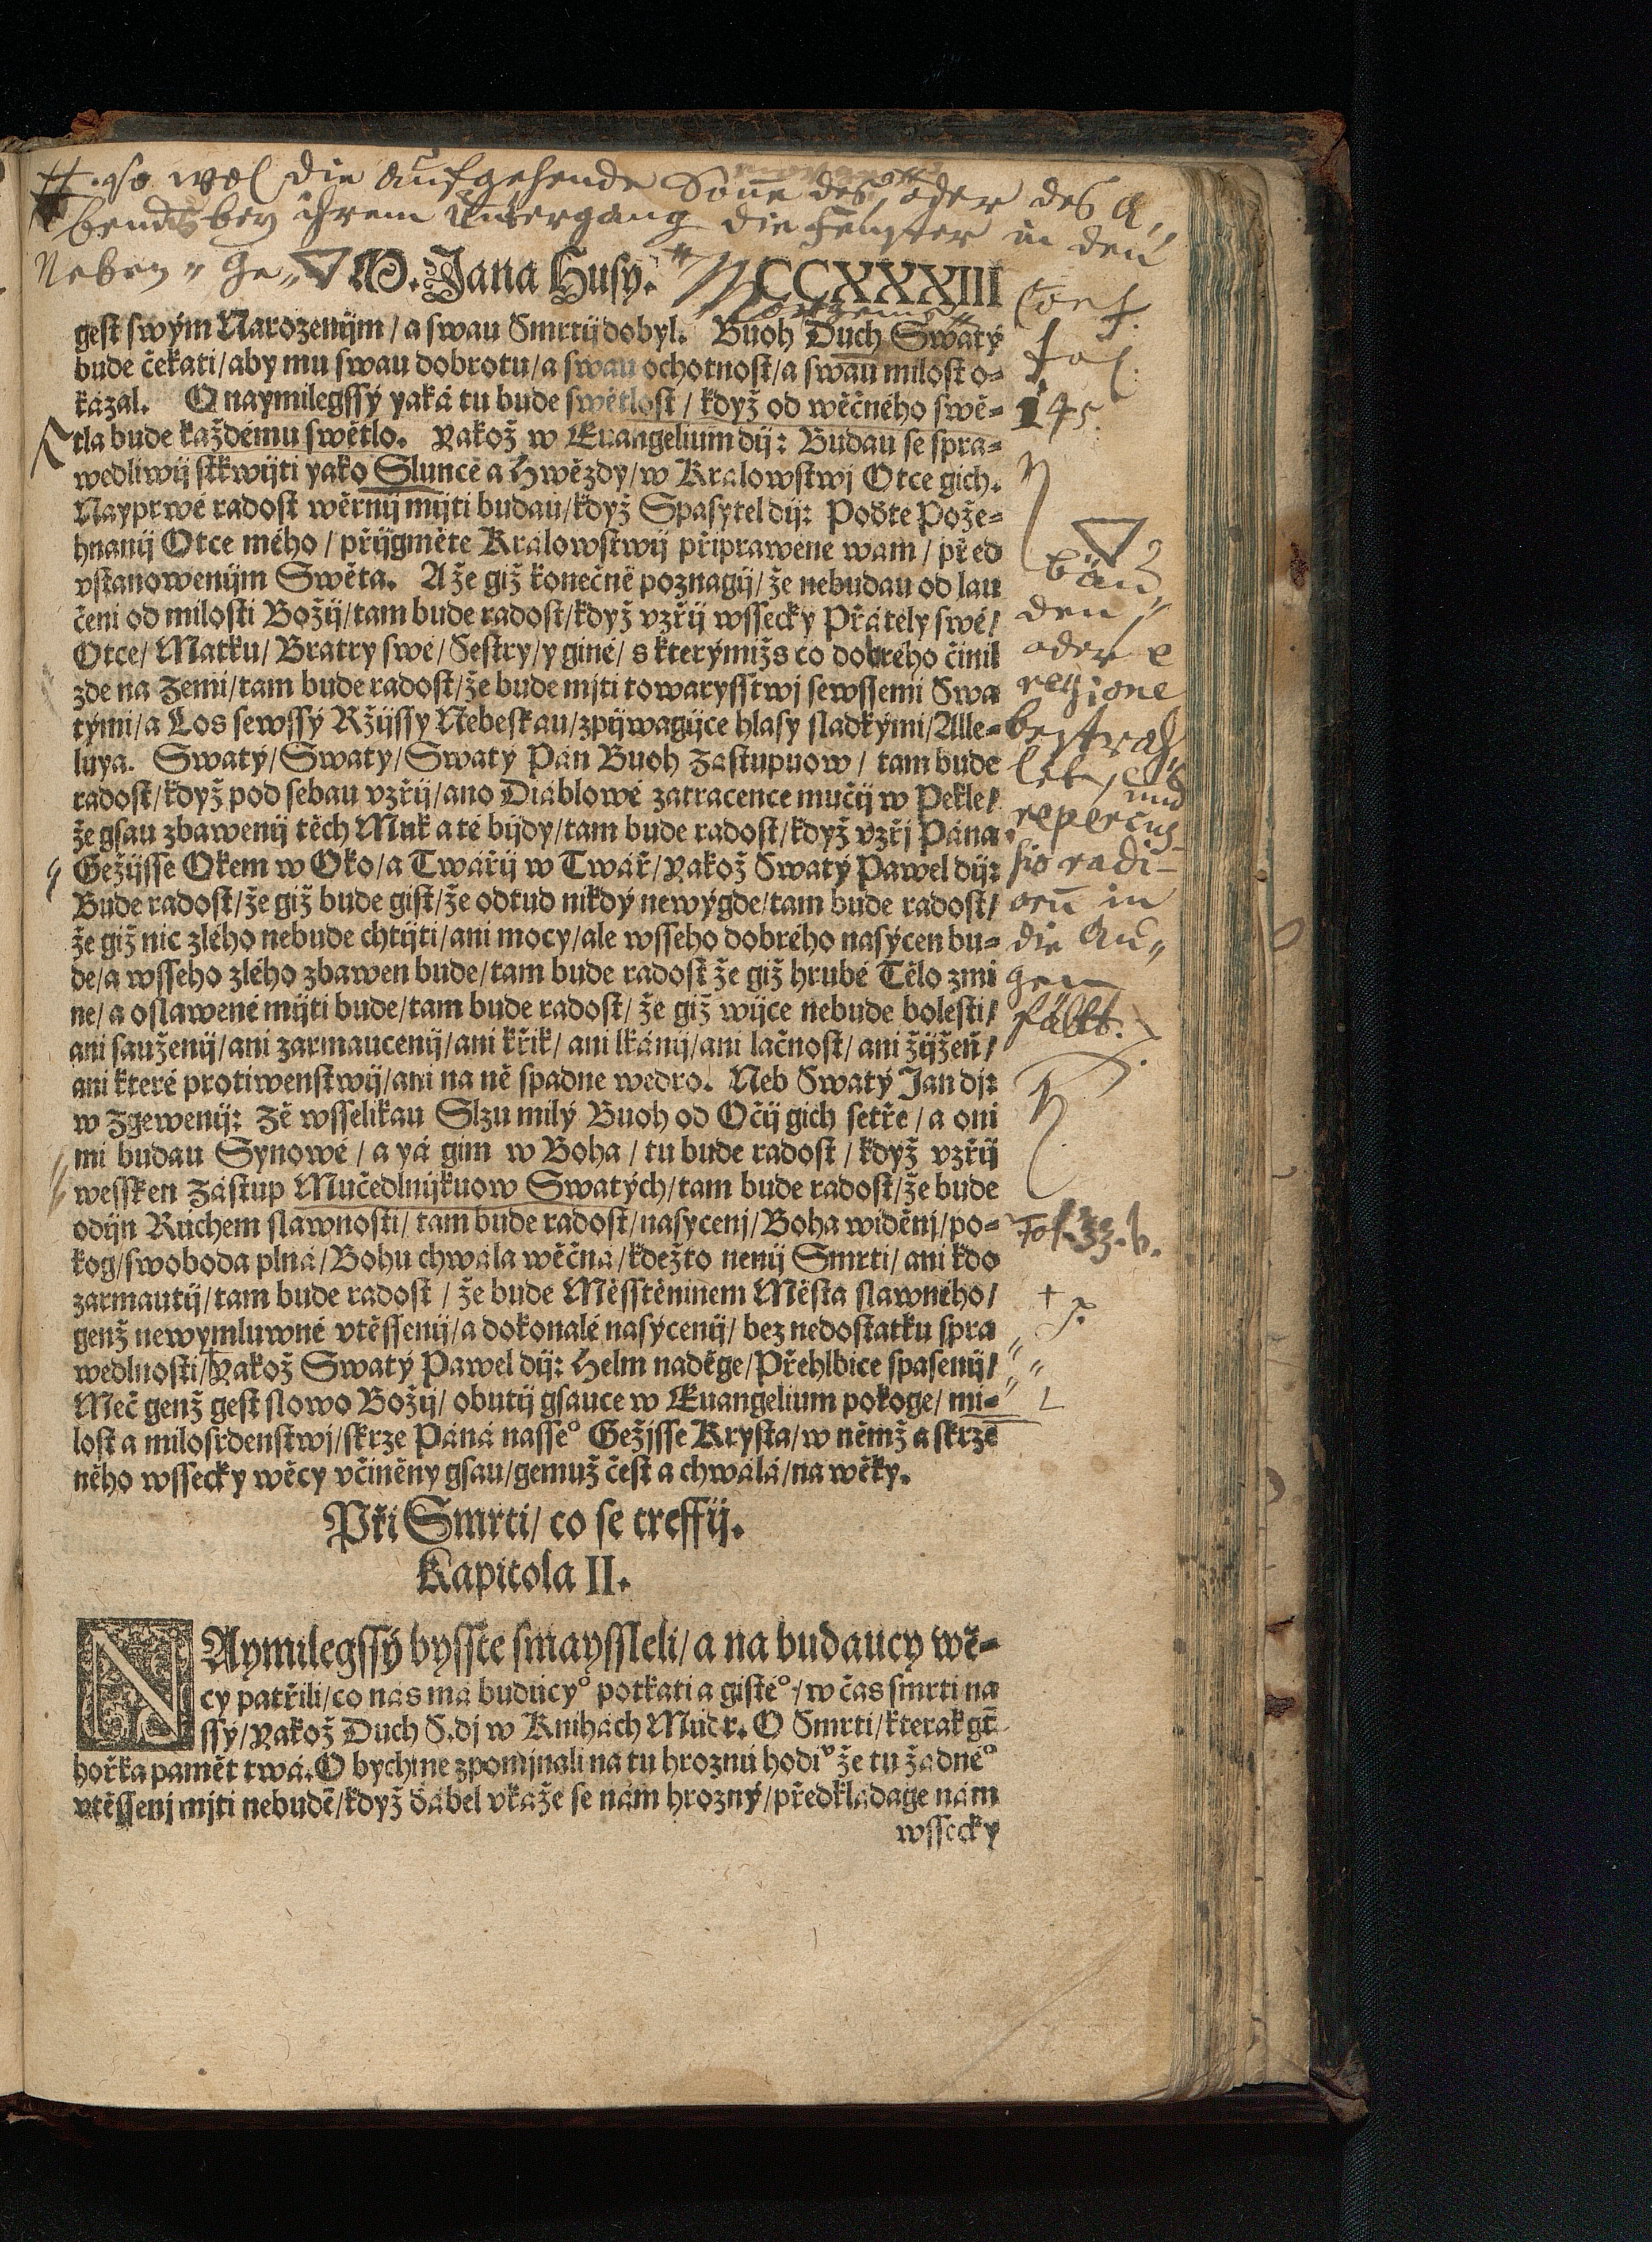 so wol die aufgehende Sonne des oder des A,,
bendts bey ihrem Untergang die Fenster in den
Neben,, Ge,,
M. Jana Husy. CCXXXIII
gest swým Narozenijm / a swau Smrtij dobyl. Buoh Duch Swatý
bude čekati / aby mu swau dobrotu / a swau ochotnost / a swau milost o-
kázal. O naymilegssý yaká tu bude swětlost / když od wěčného swě-
tla bude každému swětlo. Yakož w Euangelium dij: Budau se spra-
wedliwij stkwijti yako Slunce a Hwězdy / w Kralowstwj Otce gich.
Nayprwé radost wěrnij mijti budau / když Spasytel dij: Poďte Pože-
hnanij Otce mého / přijgměte Králowstwij připrawené wám / před
vstanowenijm Swěta. A že giž konečně poznagij / že nebudau od lau
čeni od milosti Božij / tam bude radost / když vzřij wssecky Přátely swé /
Otce / Matku / Bratry swé / Sestry / y giné / s kterýmižs co dobrého činil
zde na Zemi / tam bude radost / že bude mjti towarysstwj sewssemi Swa
tými / a Los sewssý Ržijssy Nebeskau / zpijwagijce hlasy sladkými / Alle-
luya. Swatý / Swatý / Swatý Pán Buoh Zástupuow / tam bude
radost / když pod sebau vzřij / ano Diáblowé zatracence mučij w Pekle /
že gsau zbawenij těch Muk a té bijdy / tam bude radost / když vzřj Pána
Gežijsse Okem w Oko / a Twářij w Twář / Yakož Swatý Pawel dij:
Bude radost / že giž bude gist / že odtud nikdý newýgde / tam bude radost /
že giž nic zlého nebude chtijti / ani mocy / ale wsseho dobrého nasýcen bu-
de / a wsseho zlého zbawen bude / tam bude radost že giž hrubé Tělo zmi
ne / a oslawené mijti bude / tam bude radost / že giž wijce nebude bolesti /
ani sauženij / ani zarmaucenij / ani křik / ani lkánij / ani lačnost / ani žijžeň /
ani které protiwenstwij / ani na ně spadne wedro. Neb Swatý Jan dj:
w Zgewenij: Zě wsselikau Slzu milý Buoh od Očij gich setře / a oni
mi budau Synowé / a yá gim w Boha / tu bude radost / když vzřij
wessken Zástup Mučedlnijkuow Swatých / tam bude radost / že bude
odijn Rúchem slawnosti / tam bude radost / nasycenj / Boha widěnj / po-
kog / swoboda plná / Bohu chwála wěčná / kdežto nenij Smrti / ani kdo
zarmautij / tam bude radost / že bude Měsstěninem Města slawného /
genž newymluwné vtěssenij / a dokonalé nasýcenij / bez nedostatku spra
wedlnosti / Yakož Swatý Pawel dij: Helm naděge / Přehlbice spasenij /
Meč genž gest slowo Božij / obutij gsauce w Euangelium pokoge / mi-
lost a milosrdenstwj / skrze Páná nasseº Gežjsse Krysta / w němž a skrze
něho wssecky wěcy včiněny gsau / gemuž čest a chwálá / na wěky.
Při Smrti / co se treffij.
Kapitola II.
NAymilegssý bysste smayssleli / a na budaucy wě-
cy patřili / co nás má budúcyº potkati a gistéº / w čas smrti na
ssý / Yakož Duch S. dj w Knihách Múdr. O Smrti / kterak gt̄
hořka pamět twá. O bychme zpomjnali na tu hroznú hodiᵛ že tu žádnéº
vtěssenj mjti nebudē / když ďábel vkaže se nám hrozný / předkládage nám
wssecky
Conf.
fol.
145.
bäu,,
den
oder e
regione
bestrah,,
let, und
repercus-
sio radi-
oru̅ in
die Au,,
gen
fällt.
Fol. 33. b.